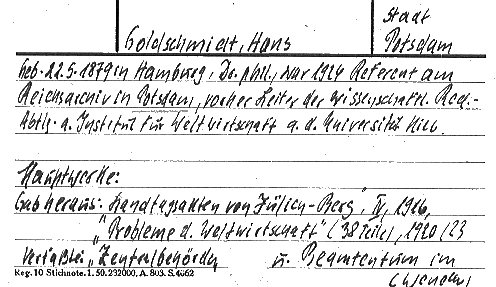 Stadt
Goldschmidt, Hans Potsdam
Geb. 22.5.1879 in Hamburg. Dr. phil., war 1924 Referent am
Reichsarchiv in Potsdam, vorher Leiter der wissenschaftl. Red.-
Abtlg. a. Institut für Weltwirtschaft a. d. Universität Kiel.
Hauptwerke:
Gab heraus: "Landtagsakten von Jülich-Berg", II, 1916,
"Probleme d. Weltwirtschaft" (38 Teile), 1920/23
"Zentralbehörden u. Beamtentum im
Reg. 10 Stichnote. 1. 50. 232000. A. 803. S. 4662